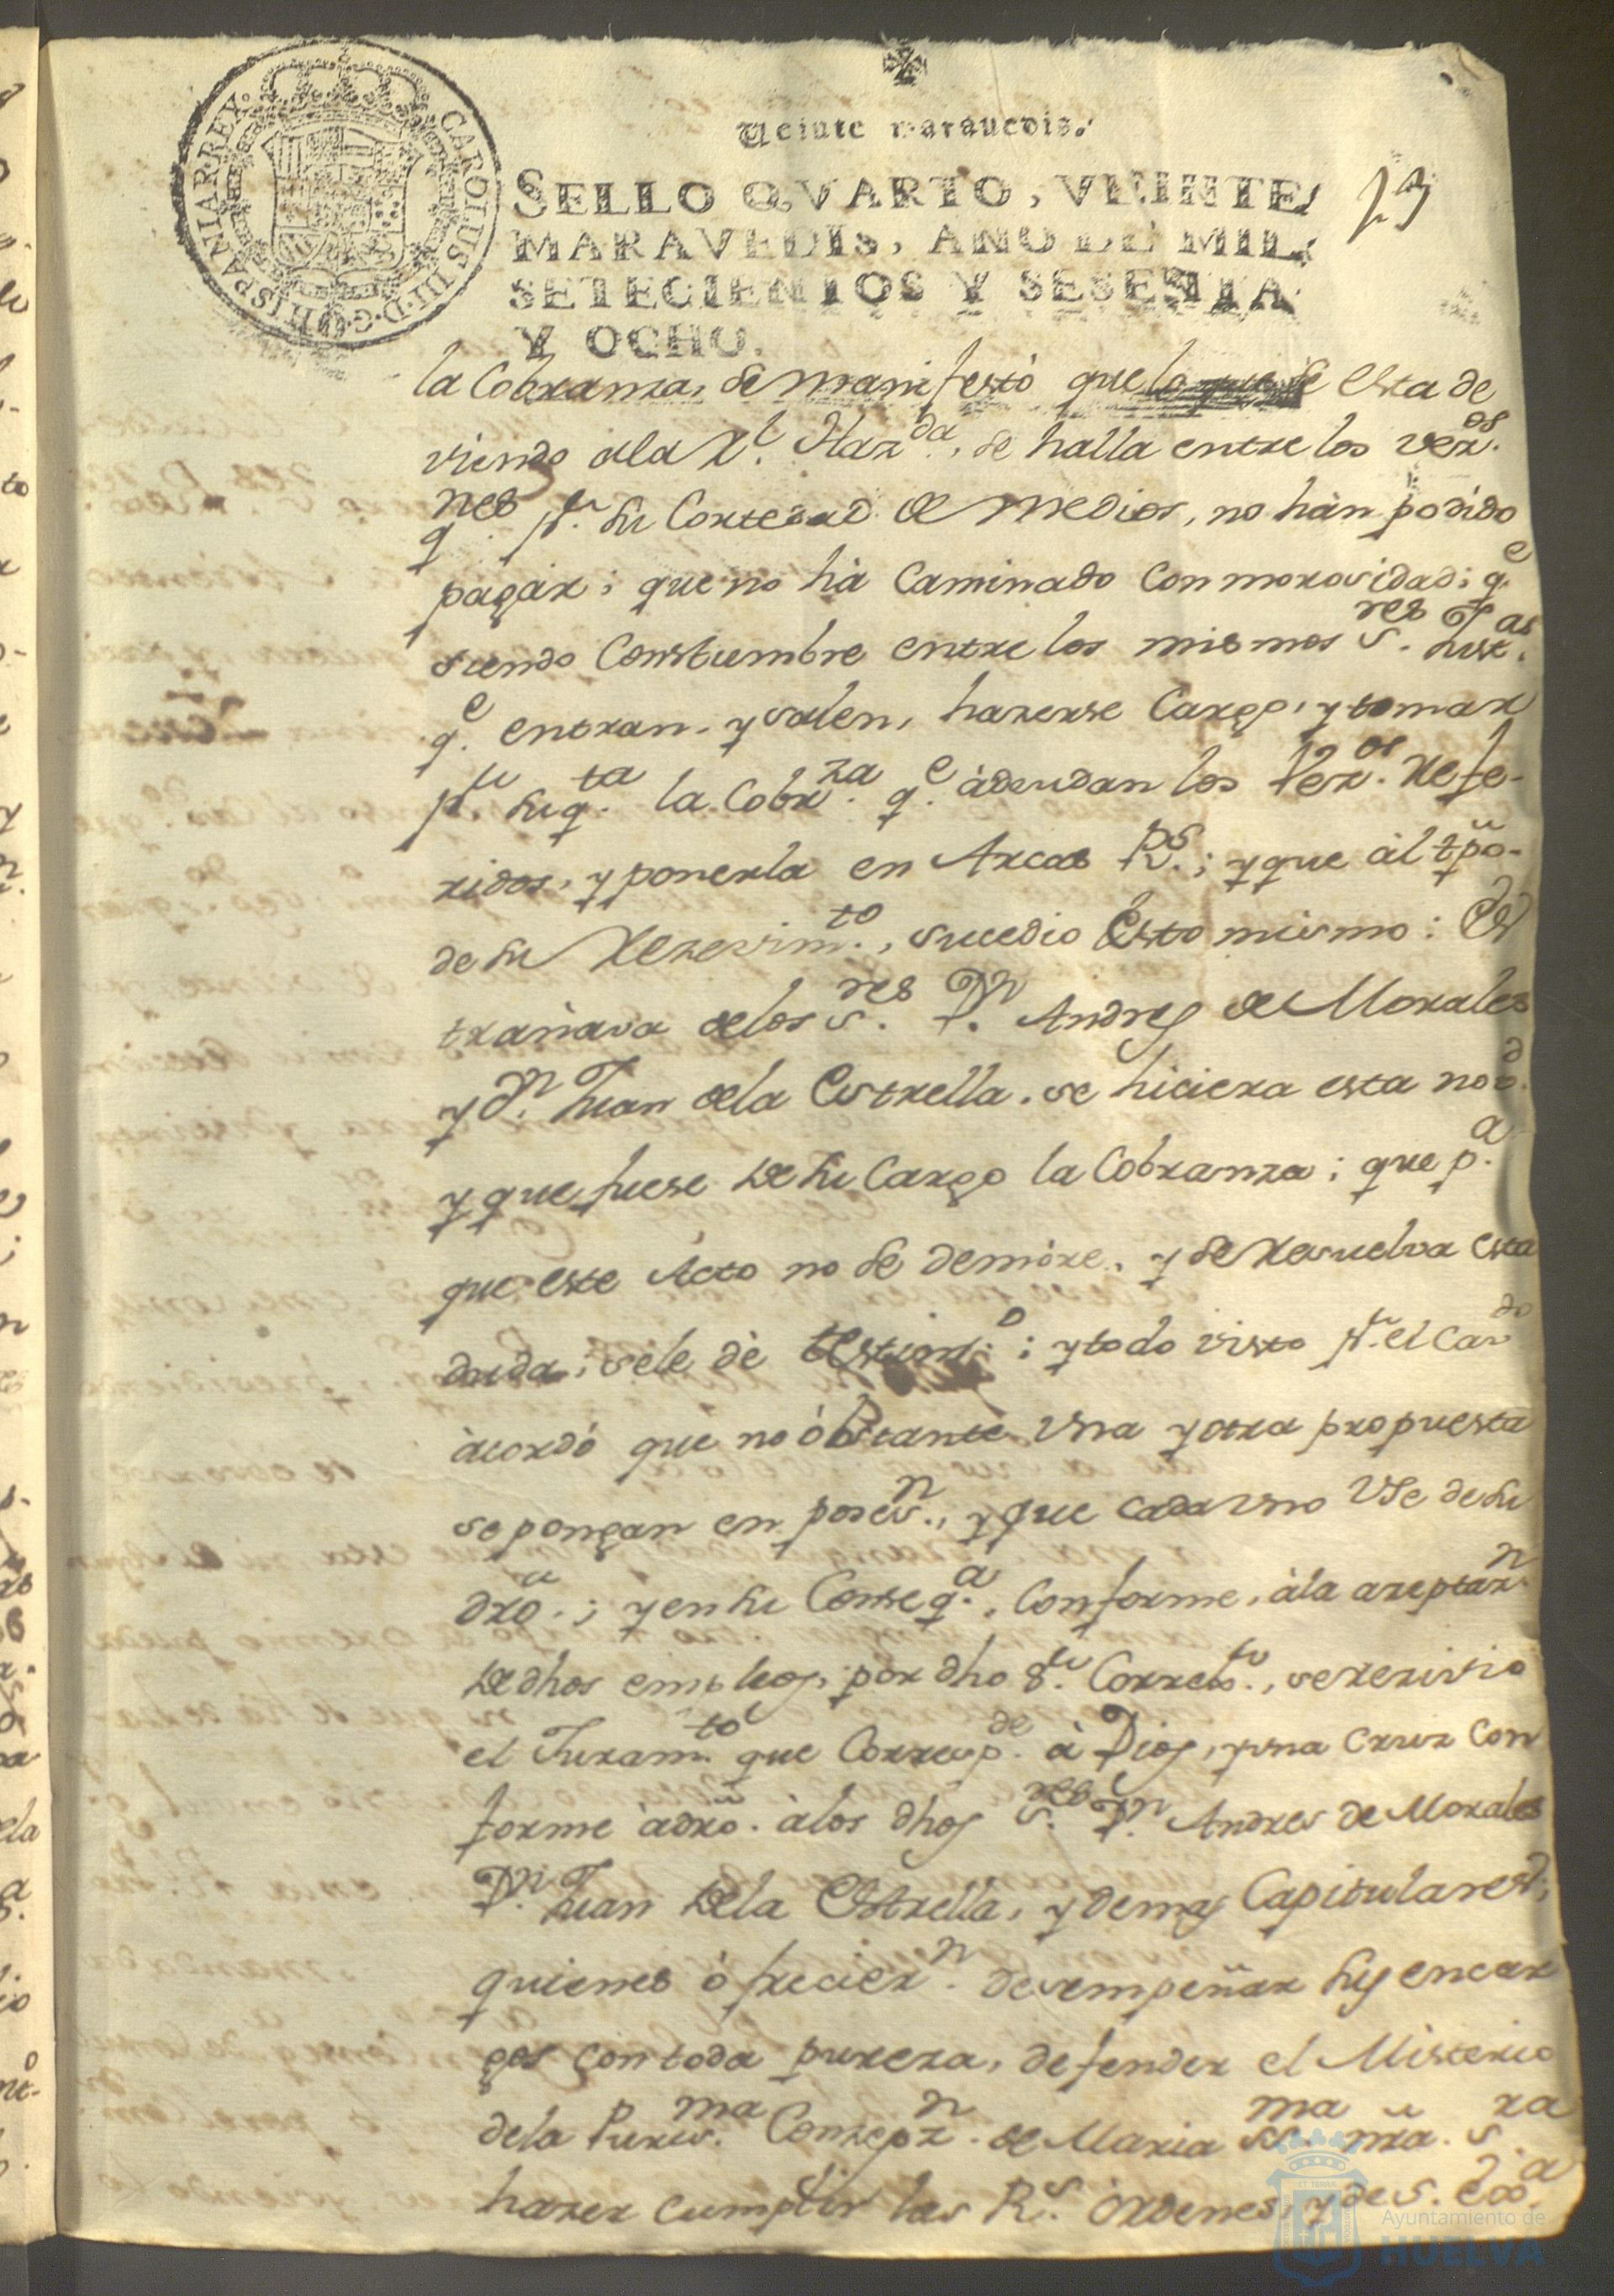 CAROLUS III D.G. HISPANIAR. REX.
Veinte marauedis.
SELLO QVARTO, VEINTE
MARAVEDIS, AÑO DE MIL
SETECIENTOS Y SESENTA
Y OCHO.
la Cobranza, se manifestò que lo que se esta de
viendo ala Rl. Hazda., se halla entre los Vezos.
qnes pr. su Cortedad de medios, no hàn podido
pagàr; que no hà Caminado Con morosidad; qe.
siendo Constumbre entre los mismos Sres. Justas.
qe. entran, y salen, hazerse Cargo, y tomar
pr. su qta. la Cobrza. qe. àdeudan los Vezos. Refe-
ridos, y ponerla en Arcas Rs.; y que àl tpo.
de su Rezevimto., sucedio Esto mismo: Es
trañava delos Sres. Dn. Andres de Morales
y Dn. Juan dela Estrella, se hiciera esta novd.
y que fuese de su Cargo la Cobranza; que pa.
que este Acto no se demòre, y se Resuelva esta
duda; sele dè testimo.; y todo visto pr. el Cavdo
àcordò que no òbstante Una y otra propuesta
se pongan en posesn., y que cada Uno Use de su
dro.; y en su Conseqa., Conforme, àla azeptazn.
de dhos empleos, por dho Sr. Correxr., se rezivio
el Juramto. que Correspde. à Dios, y una Cruz Con
forme àdro. àlos dhos Sres. Dn. Andres de Morales
Dn. Juan dela Estrella, y demas Capitulares;
quienes òfreciern. desempeñar sus encar
gos con toda pureza, defender el Misterio
dela Purisma. Conzepzn. de Maria SSma. nra. Sra.
hazer cumplir las Rs. òrdenes, y de S. Exa.
Ayuntamiento de
HUELVA